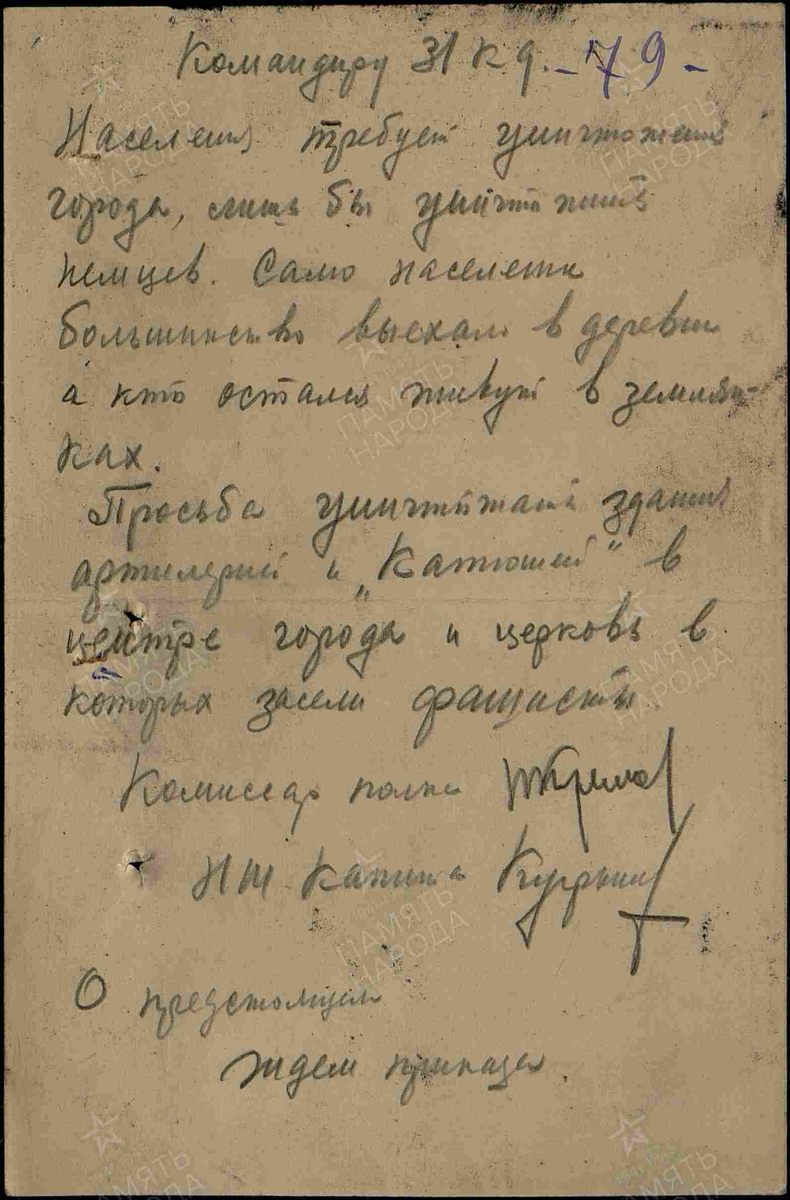 Командиру 31 к д. -79-
Население требует уничтожения
города, лишь бы уничтожить
немцев. Само население
большинство выехало в деревни
а кто остался живут в землян-
ках.
Просьба уничтожать здания
артилерией и „Катюшей" в
центре города и церковь в
которых засели фашисты
Комиссар полка
НШ Капитан
О предстоящем
ждем приказа.
ПАМЯТЬ
НАРОДА